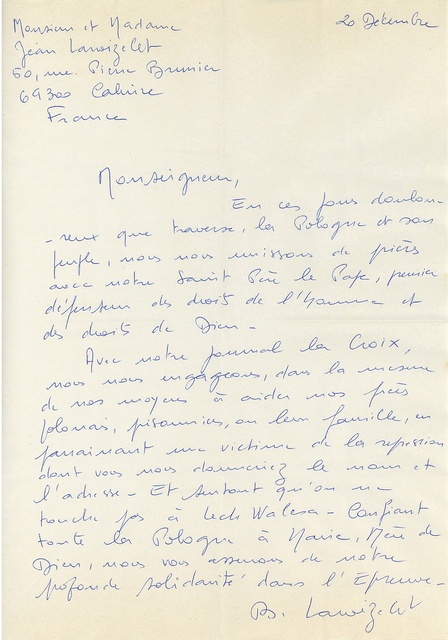 Monsieur et Madame
Jean Lavoizelet
50, rue Pierre Brunier
69300 Caluire
France
20 Décembre
Monseigneur,
En ces jours doulou-
-reux que traverse, la Pologne et son
peuple, nous nous unissons de prières
avec notre Saint Père le Pape, premier
défenseur des droits de l'Homme et
des droits de Dieu -
Avec notre journal la Croix,
nous nous engageons, dans la mesure
de nos moyens à aider nos frères
polonais, prisonniers, ou leur famille, en
parrainant une victime de la répression
dont vous nous donneriez le nom et
l'adresse - Et surtout qu'on ne
touche pas à Lech Walesa - Confiant
toute la Pologne à Marie, Mère de
Dieu, nous vous assurons de notre
profonde solidarité dans l'Epreuve -
Lavoizelet